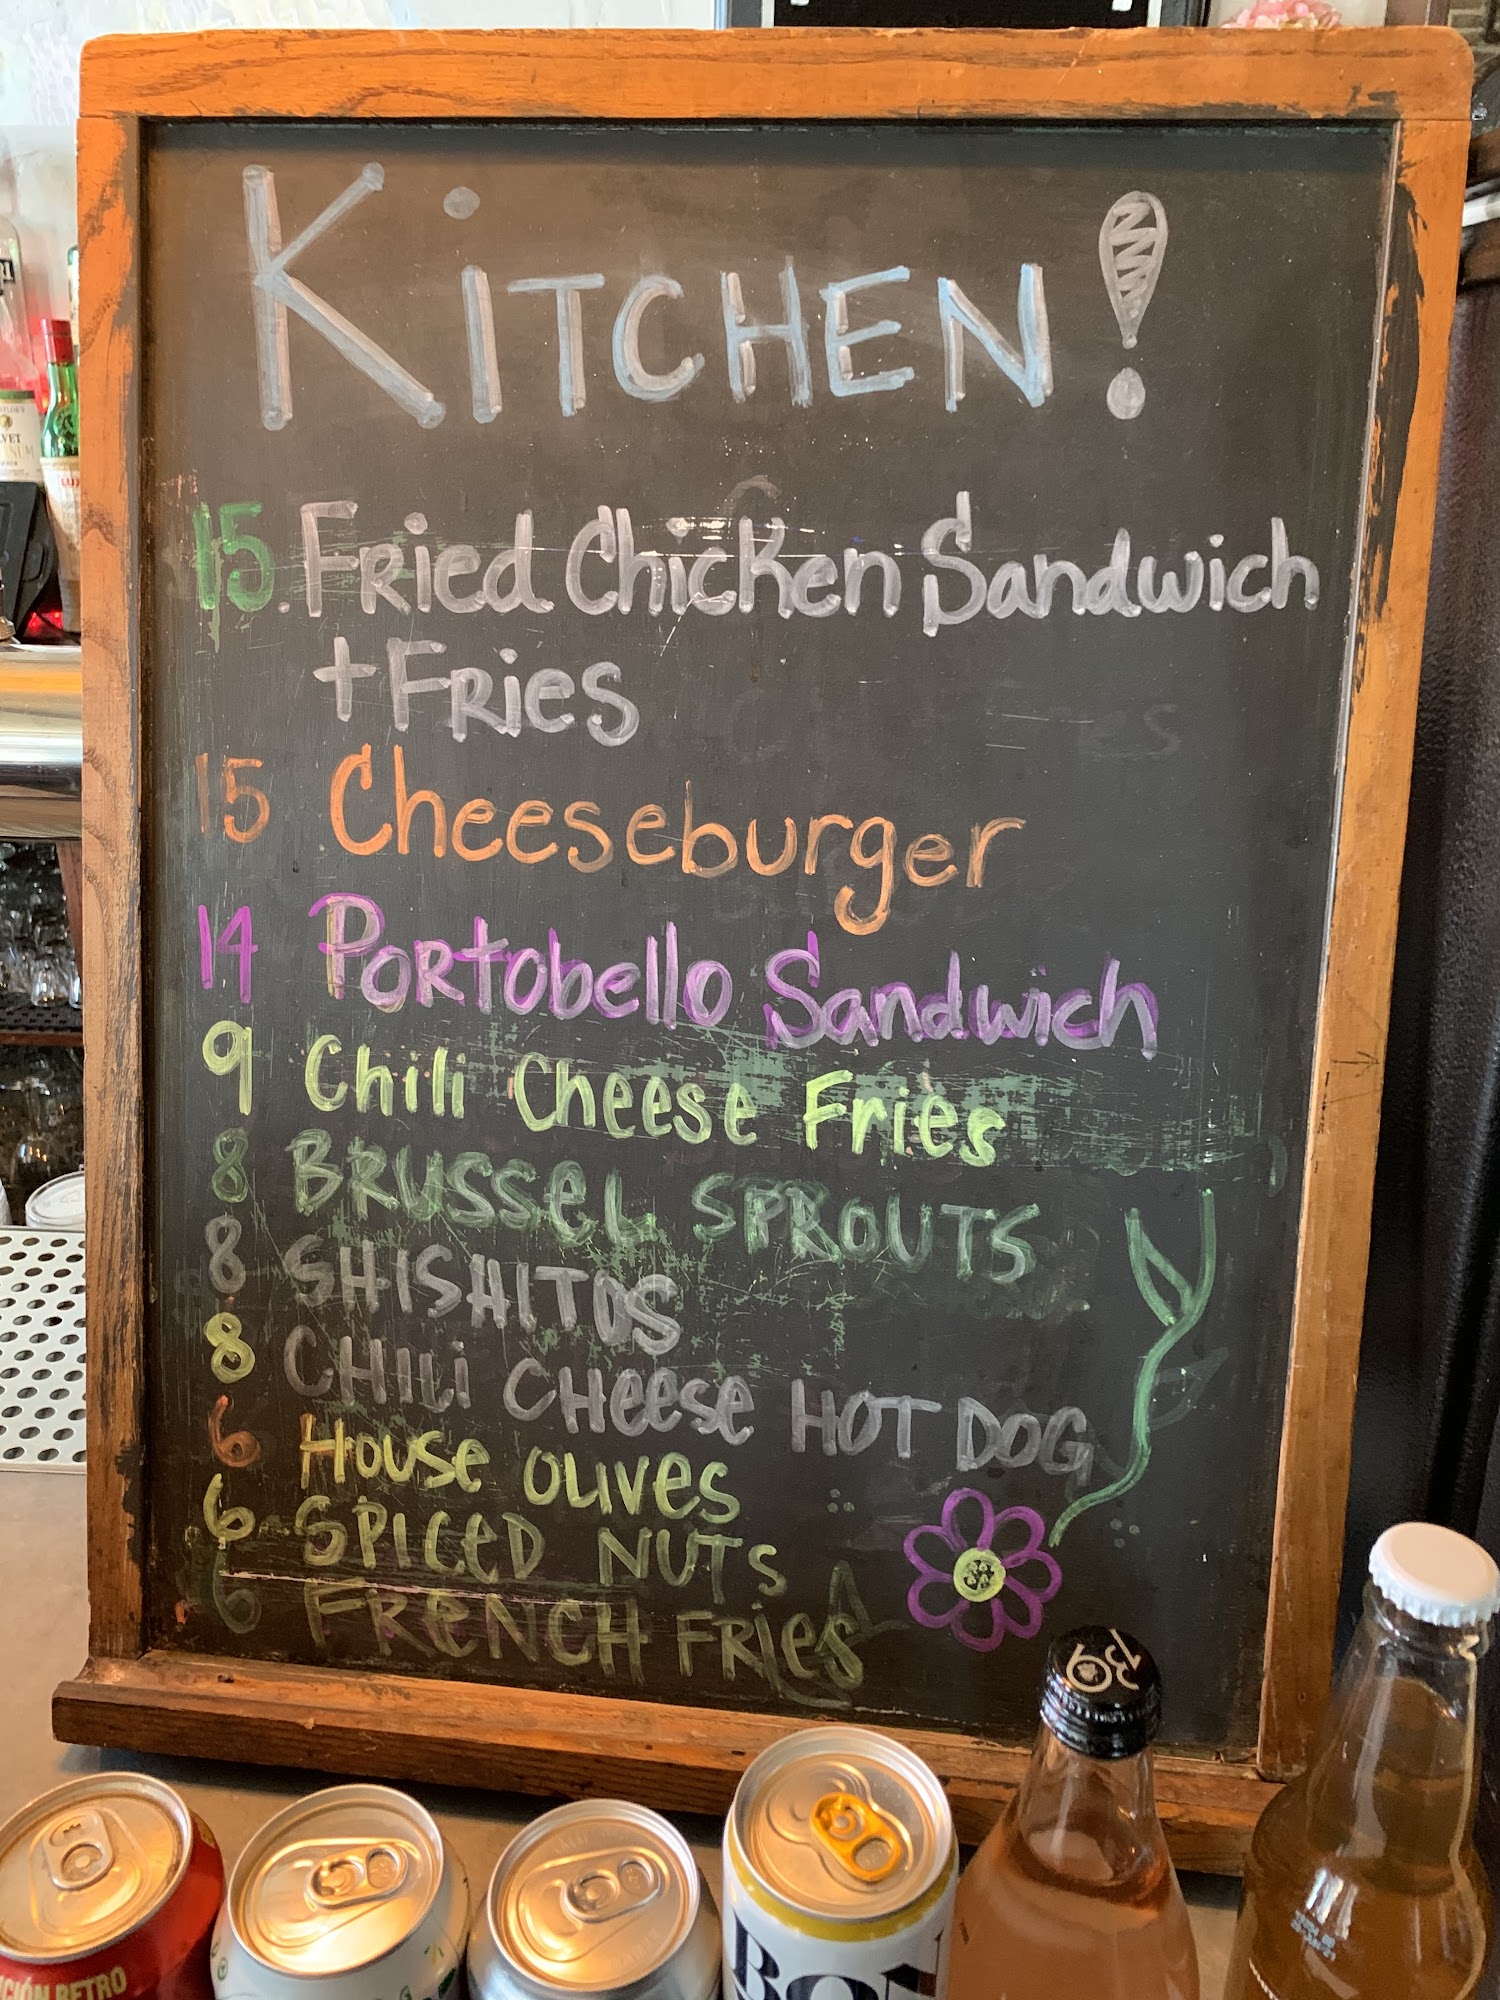 KiTCHEN!
15. Fried Chicken Sandwich
+ Fries
15 Cheeseburger
14 Portobello Sandwich
9 Chili Cheese Fries
8 BRUSSEL SPROUTS
8 SHISHITOS
8 CHILi CHeese HOT DOG
6 House OLIVES
6 SPICED NUTS
6 FRENCH FRIES
139
CIÓN RETRO